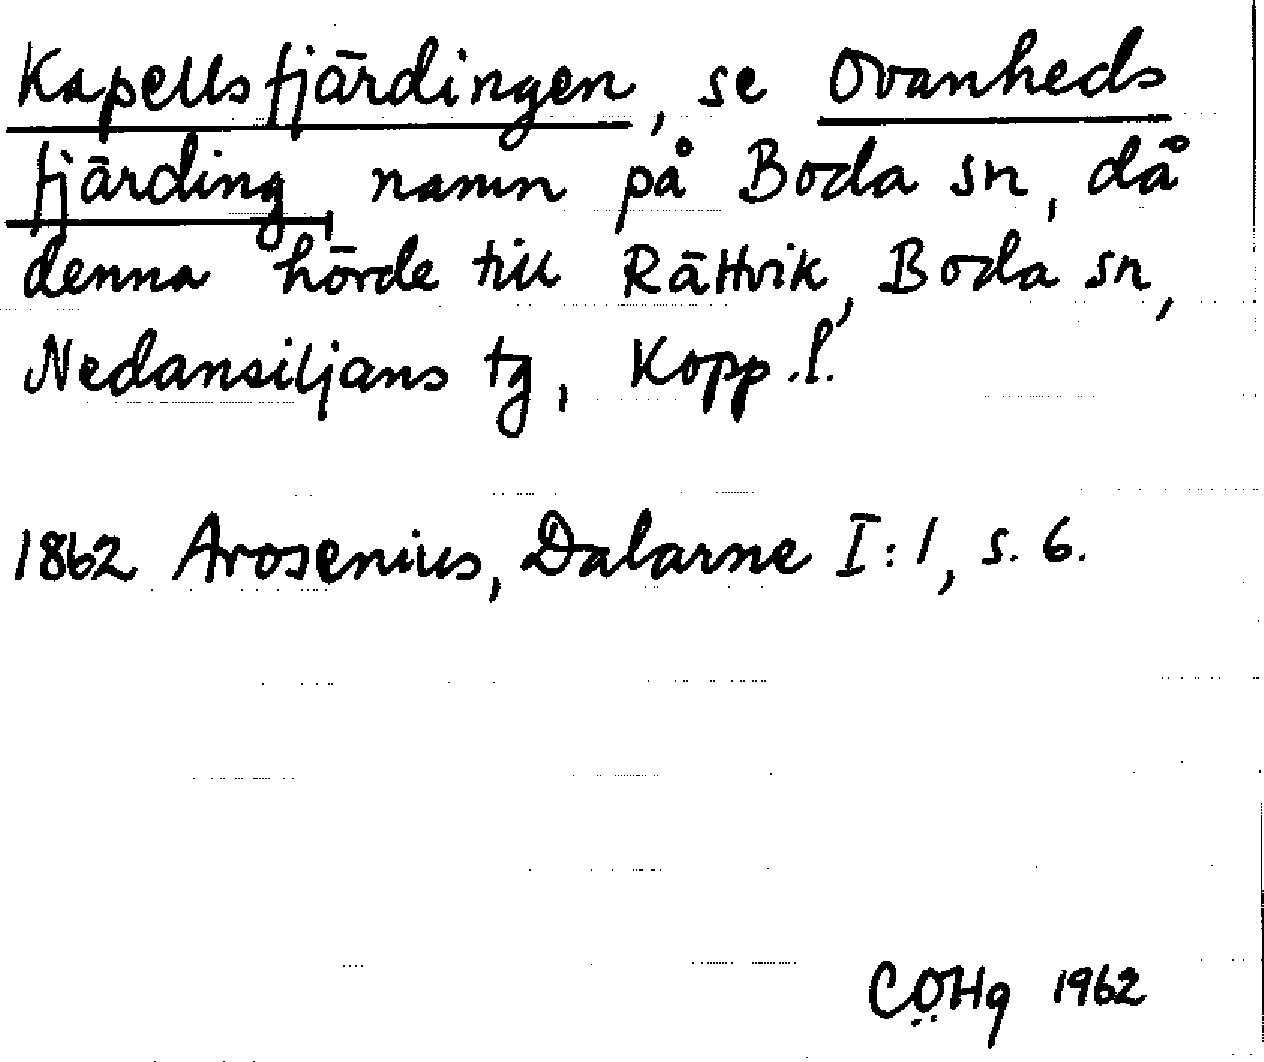 Kapellsfjärdingen, se Ovanheds
fjärding, namn på Boda sn, då
denna hörde till Rättvik, Boda sn,
Nedansiljans tg, Kopp.l.
1862 Arosenius, Dalarne I:1, s. 6.
CÖHg 1962